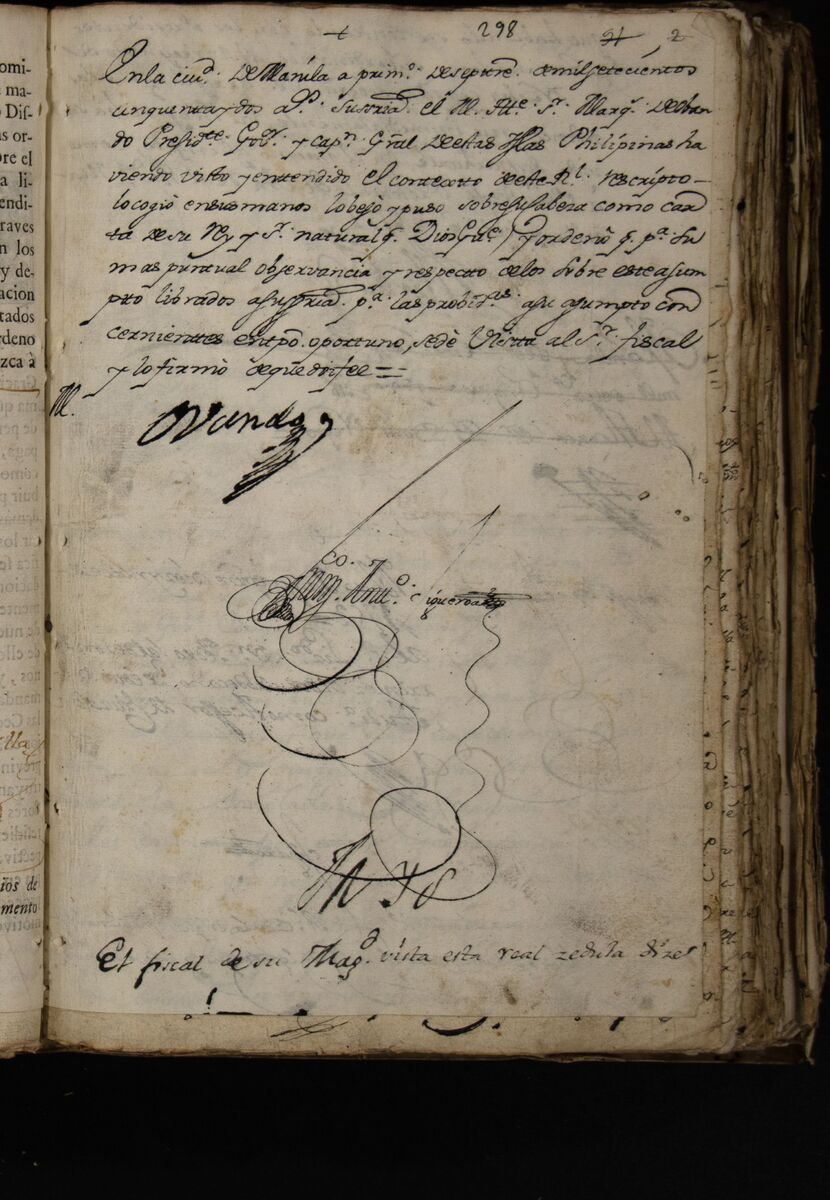 + 298 2
En la ciud. de Manila a prim.º de septre. de mil setecientos
cinquenta y dos a.s Su Sria. el M. Itte. Sr. Marq.s de Oban
do Presid.te Gov.or y cap.n Gñal de estas Yslas Philipinas ha
viendo visto y entendido el contexto de este Rl. rescripto
lo cogió en sus manos lo besó y puso sobre su cabeza como car
ta de su Rey y Sr. natural q. Dios Gue. y ordenó q. pa. su
mas puntual observancia y respecto de los sobre este asum
pto librados a su Sria. pa. las probid.as a su asumpto con
cernientes en tpo. oportuno, se dé Vista al Sr. fiscal
y lo firmó de que doi fee =
M.
Ovando
Ant.º Figueroa
El fiscal de su Mag.d vista esta real zedula dize
omi-
ma-
Dis-
as or-
bre el
a li-
endi-
raves
n los
y de-
acion
tados
rdeno
zca à
ios de
mento